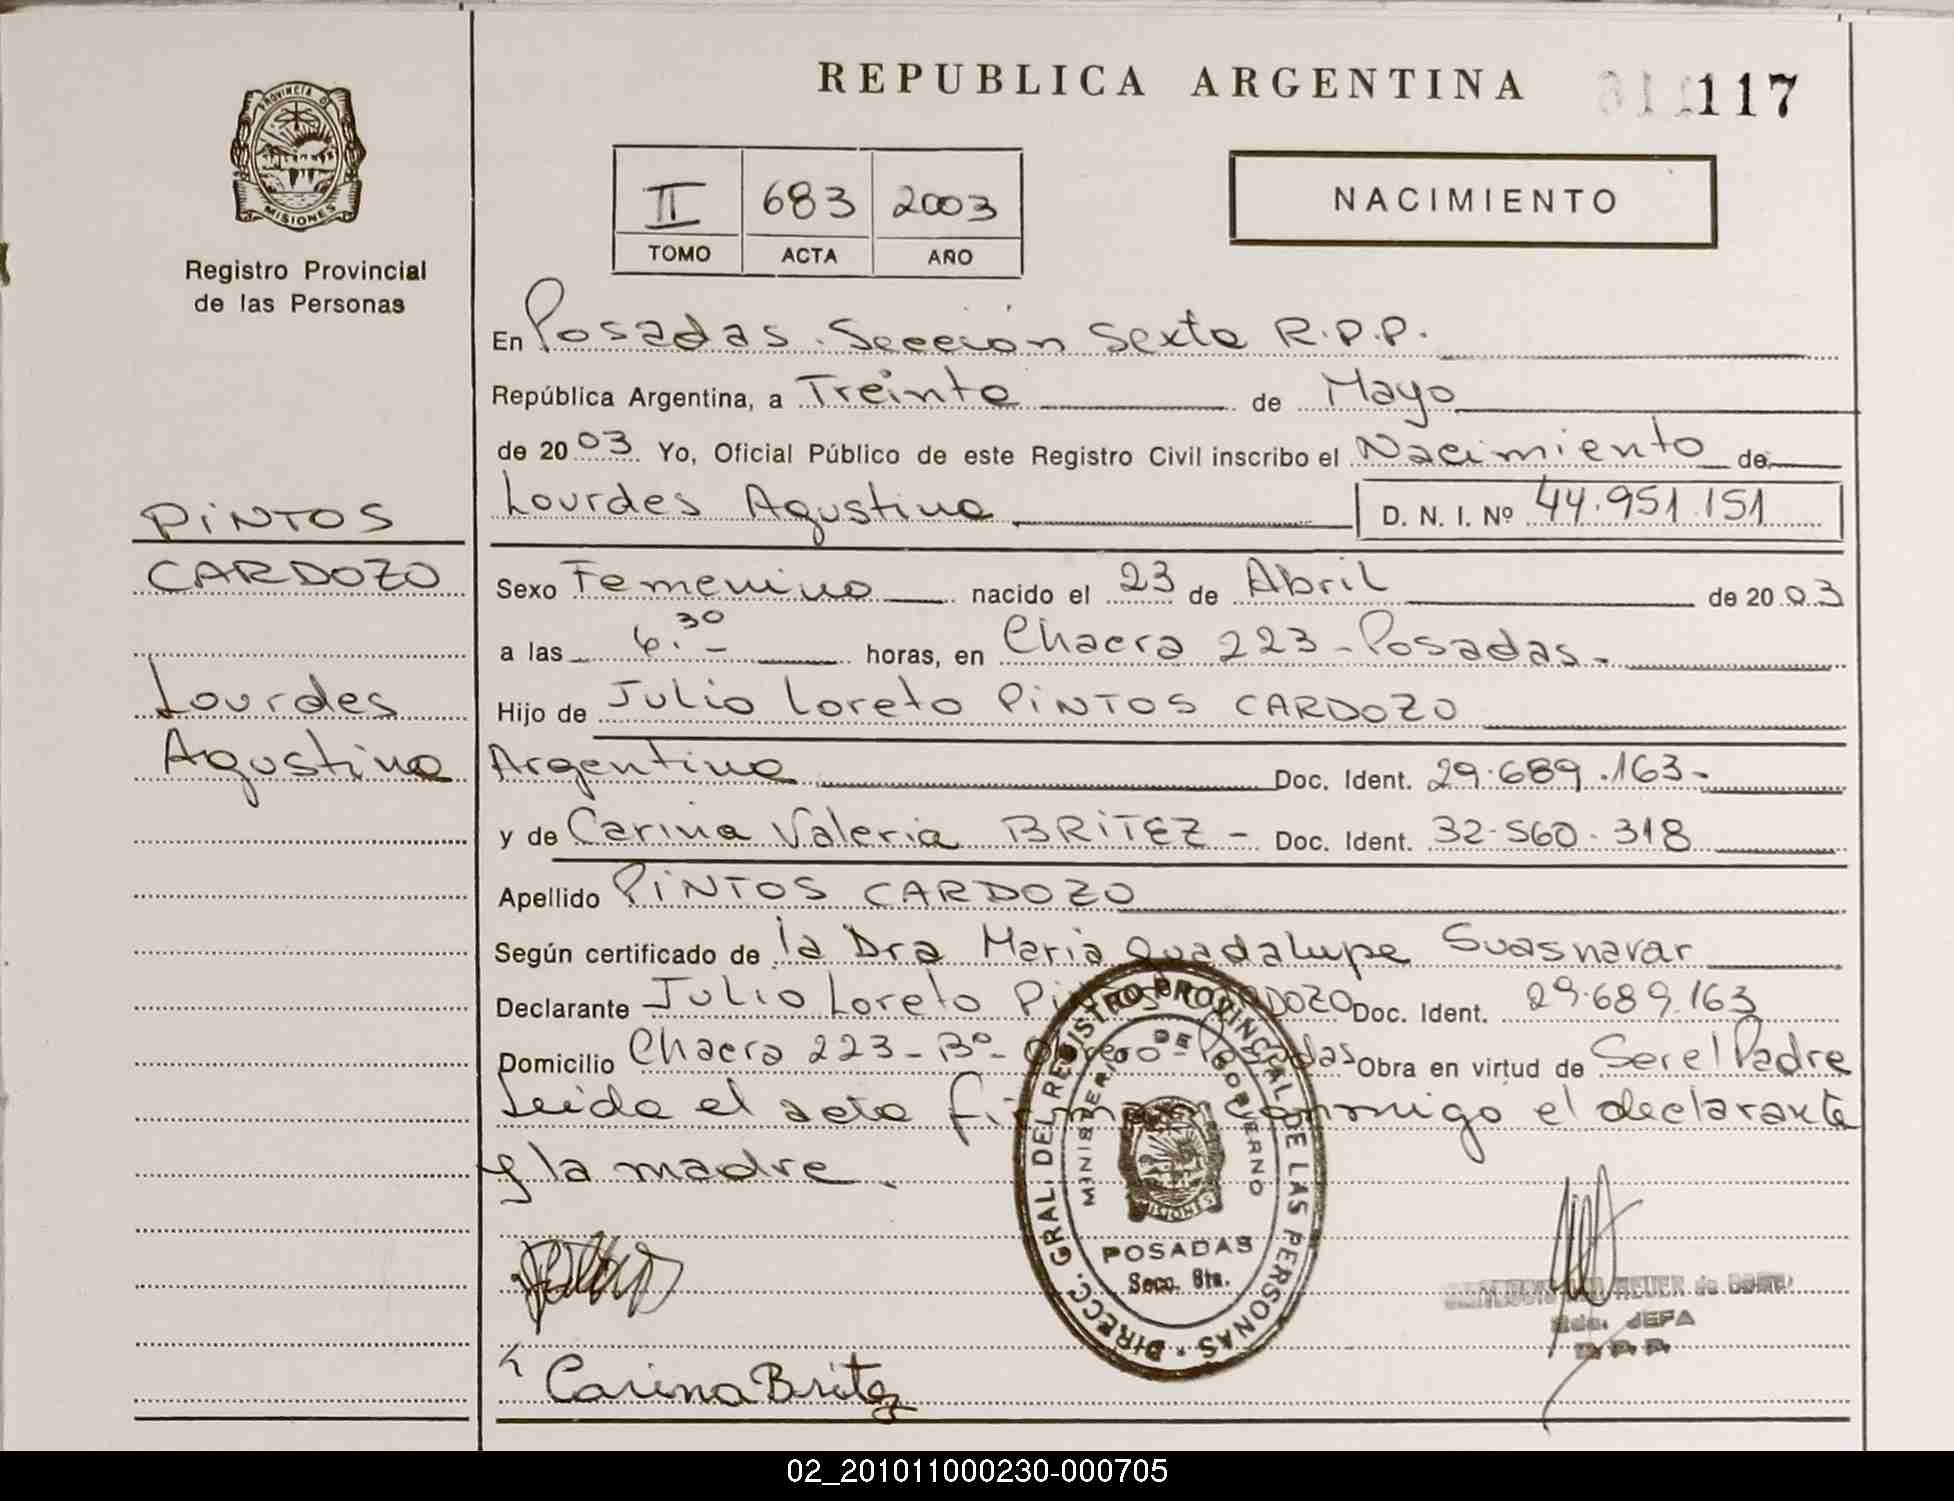 REPUBLICA ARGENTINA
117
PROVINCIA DE
MISIONES
Registro Provincial
de las Personas
II 683 2003
TOMO ACTA AÑO
NACIMIENTO
En Posadas. Sección Sexta R.P.P.
República Argentina, a Treinta de Mayo
de 2003. Yo, Oficial Público de este Registro Civil inscribo el Nacimiento de
Lourdes Agustina D. N. I. Nº 44.951.151
PINTOS
CARDOZO
Lourdes
Agustina
Sexo Femenino nacido el 23 de Abril de 2003
a las 6.30 horas, en Chacra 223 - Posadas.
Hijo de Julio Loreto PINTOS CARDOZO
Argentina Doc. Ident. 29.689.163-
y de Carina Valeria BRITEZ - Doc. Ident. 32.560.318
Apellido PINTOS CARDOZO
Según certificado de la Dra Maria Guadalupe Suasnavar
Declarante Julio Loreto PINTOS CARDOZO Doc. Ident. 29.689.163
Domicilio Chacra 223 - Bº Obrero - Posadas Obra en virtud de Ser el Padre
Leida el acta firman conmigo el declarante
y la madre.
DIRECC. GRAL. DEL REGISTRO PROVINCIAL DE LAS PERSONAS
MINISTERIO DE GOBIERNO
MISIONES
POSADAS
Secc. 6ta.
JEFA
R.P.P.
Carina Britez
02_201011000230-000705